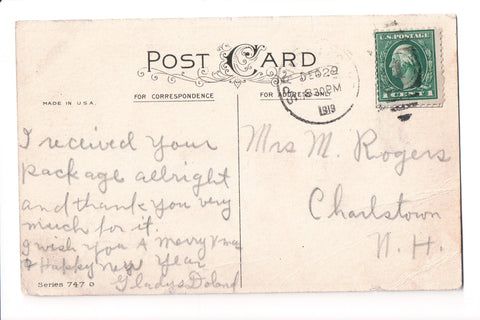 POST CARD
MADE IN U.S.A.
FOR CORRESPONDENCE
FOR ADDRESS ONLY
DEC 29
830PM
1919
U.S. POSTAGE
1 CENT 1
I received your
package allright
and thank you very
much for it.
I wish you A Merry Xmas
& Happy New Year
Gladys
Mrs M. Rogers
Charlstown
N. H.
Series 747 D